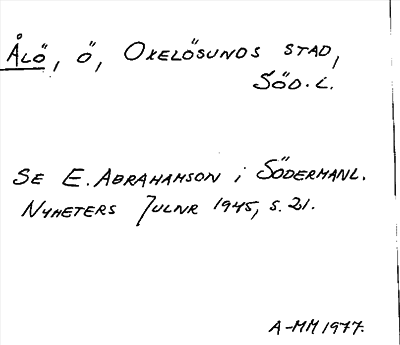 Ålö, ö, Oxelösunds stad,
Söd. l.
Se E. Abrahamson i Södermanl.
Nyheters Julnr 1945, s. 21.
A-MM 1977.